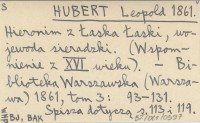 S HUBERT Leopold 1861.
Hieronim z Łaska Łaski, wo-
jewoda sieradzki. (Wspom-
nienie z XVI wieku). – Bi-
blioteka Warszawska (Warsza-
wa) 1861, tom 3: 93-131.
Spisza dotyczą s. 113 i 119.
BJ, BAK